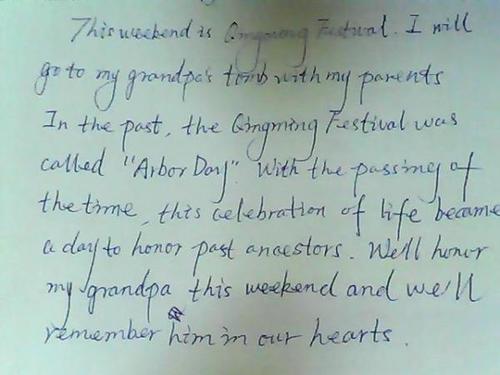 This weekend is Qingming Festival. I will
go to my grandpa's tomb with my parents
In the past, the Qingming Festival was
called "Arbor Day". With the passing of
the time, this celebration of life became
a day to honor past ancestors. We'll honor
my grandpa this weekend and we'll
remember him in our hearts.